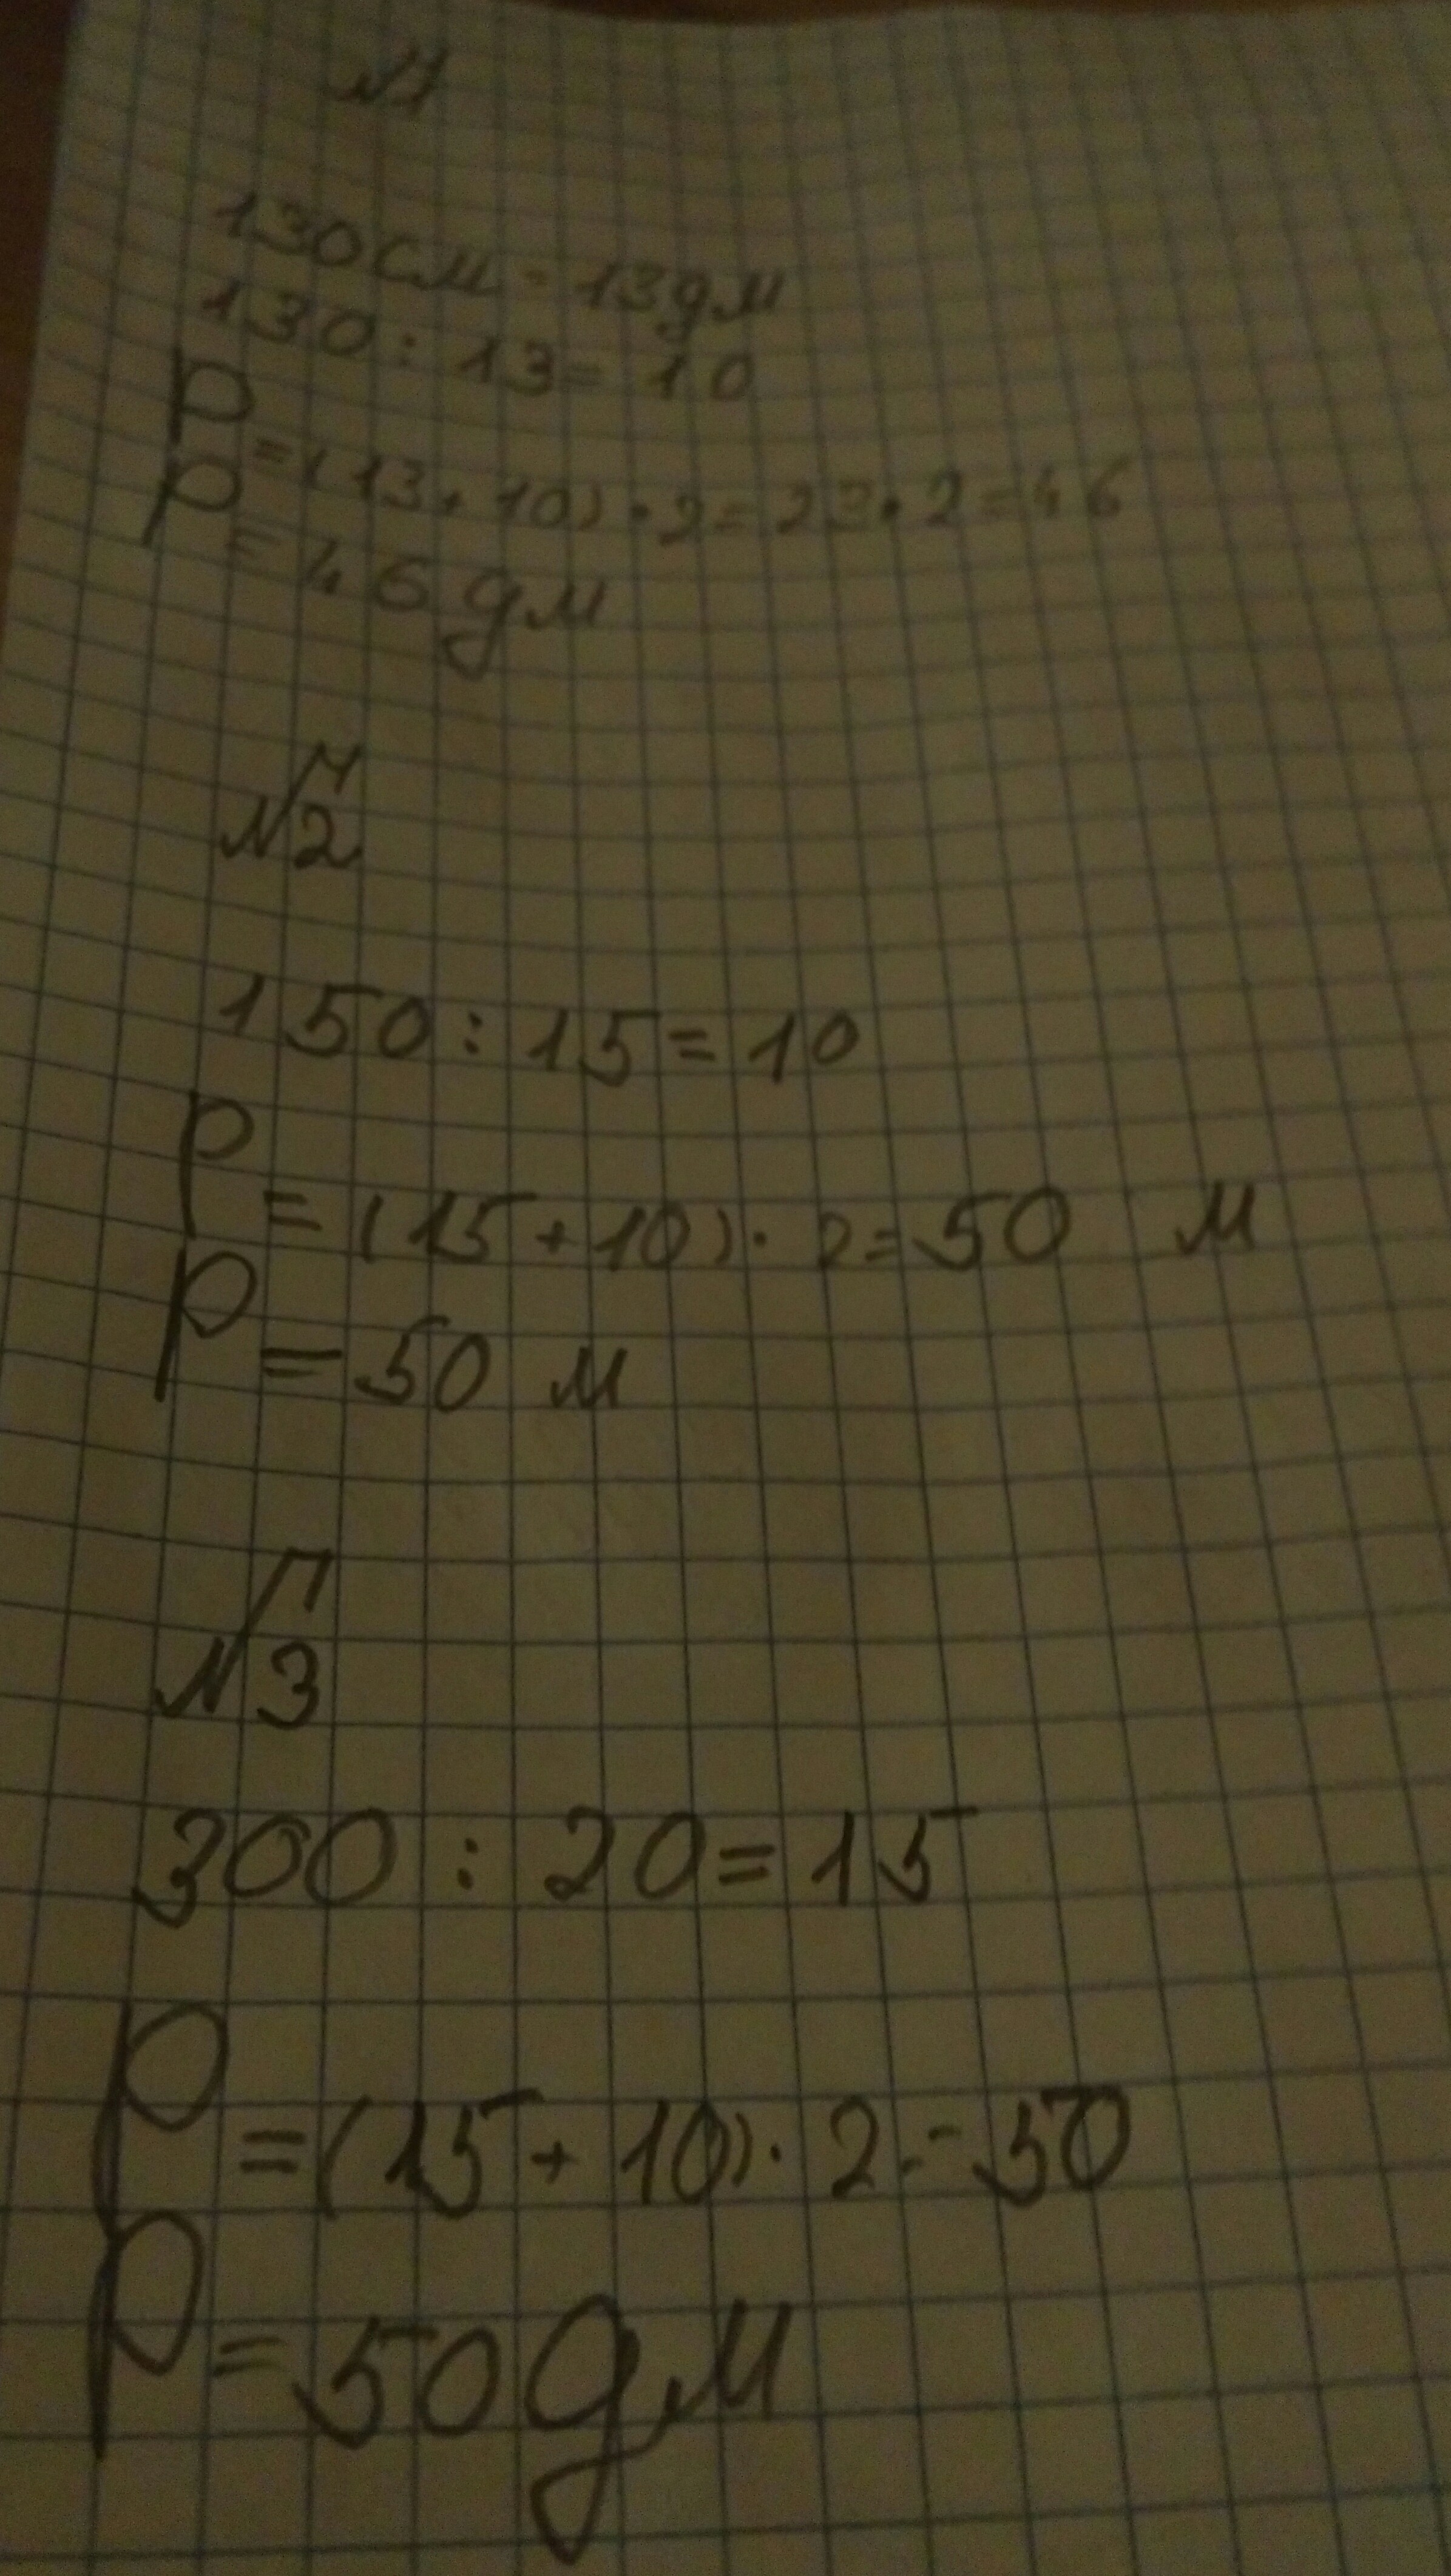 №1
130см = 13дм
130 : 13 = 10
P = (13 + 10) · 2 = 23 · 2 = 46
P = 46 дм
№2
150 : 15 = 10
P = (15 + 10) · 2 = 50 м
P = 50 м
№3
300 : 20 = 15
P = (15 + 10) · 2 = 50
P = 50 дм